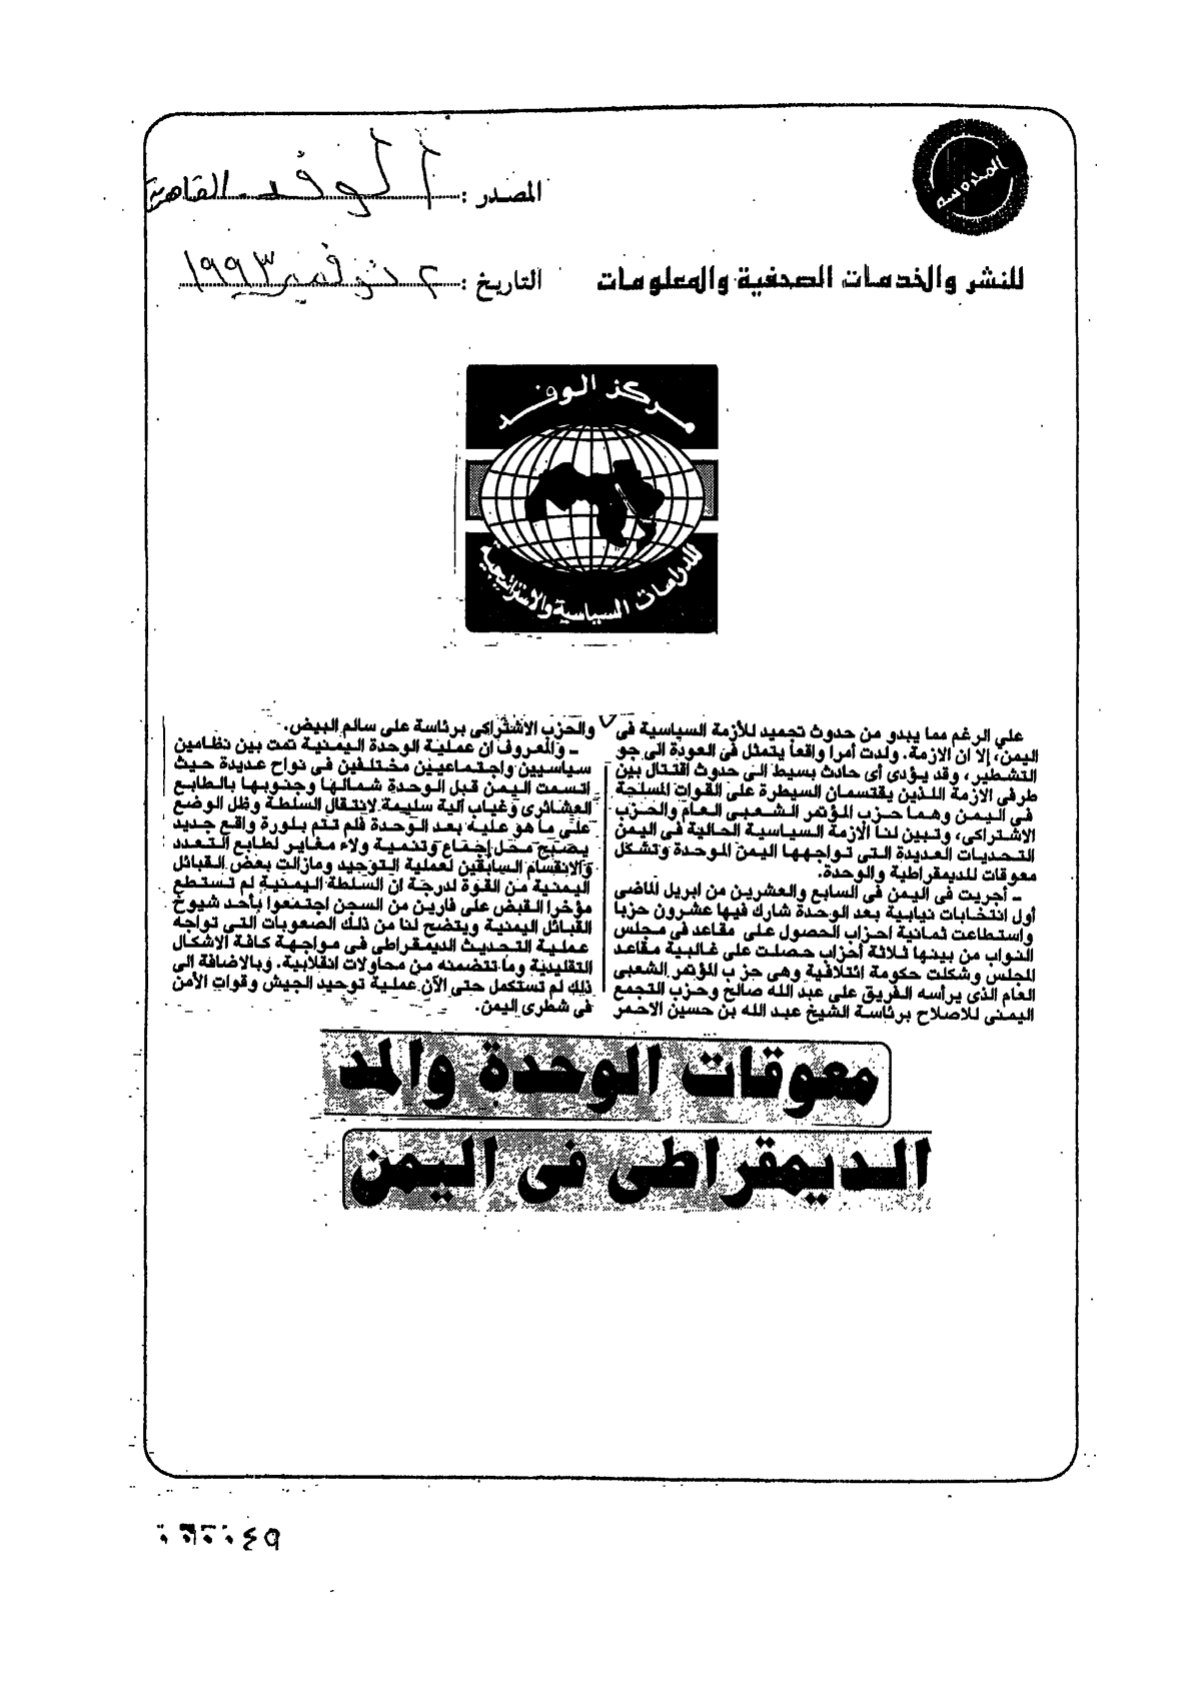 المصدر : الوفد القاهرية
للنشر والخدمات الصحفية والمعلومات
التاريخ : ٢ نوفمبر ١٩٩٣
مركز الوفد
للدراسات السياسية والاستراتيجية
على الرغم مما يبدو من حدوث تجميد للأزمة السياسية فى
اليمن، إلا ان الازمة. ولدت أمرا واقعا يتمثل فى العودة الى جو
التشطير، وقد يؤدى أى حادث بسيط الى حدوث اقتتال بين
طرفى الازمة اللذين يقتسمان السيطرة على القوات المسلحة
فى اليمن وهما حزب المؤتمر الشعبى العام والحزب
الاشتراكى، وتبين لنا الازمة السياسية الحالية فى اليمن
التحديات العديدة التى تواجهها اليمن الموحدة وتشكل
معوقات للديمقراطية والوحدة.
ـ أجريت فى اليمن فى السابع والعشرين من ابريل الماضى
أول انتخابات نيابية بعد الوحدة شارك فيها عشرون حزبا
واستطاعت ثمانية احزاب الحصول على مقاعد فى مجلس
النواب من بينها ثلاثة أحزاب حصلت على غالبية مقاعد
المجلس وشكلت حكومة ائتلافية وهى حزب المؤتمر الشعبى
العام الذى يرأسه الفريق على عبد الله صالح وحزب التجمع
اليمنى للاصلاح برئاسة الشيخ عبد الله بن حسين الاحمر
والحزب الاشتراكى برئاسة على سالم البيض.
ـ والمعروف ان عملية الوحدة اليمنية تمت بين نظامين
سياسيين واجتماعيين مختلفين فى نواح عديدة حيث
اتسمت اليمن قبل الوحدة شمالها وجنوبها بالطابع
العشائرى وغياب آلية سليمة لانتقال السلطة وظل الوضع
على ما هو عليه بعد الوحدة فلم تتم بلورة واقع جديد
يصبح محل إجماع وتنمية ولاء مغاير لطابع التعدد
والانقسام السابقين لعملية التوحيد ومازالت بعض القبائل
اليمنية من القوة لدرجة ان السلطة اليمنية لم تستطع
مؤخرا القبض على فارين من السجن اجتمعوا بأحد شيوخ
القبائل اليمنية ويتضح لنا من ذلك الصعوبات التى تواجه
عملية التحديث الديمقراطى فى مواجهة كافة الاشكال
التقليدية وما تتضمنه من محاولات انقلابية. وبالاضافة الى
ذلك لم تستكمل حتى الآن عملية توحيد الجيش وقوات الأمن
فى شطرى اليمن.
معوقات الوحدة والمد
الديمقراطى فى اليمن